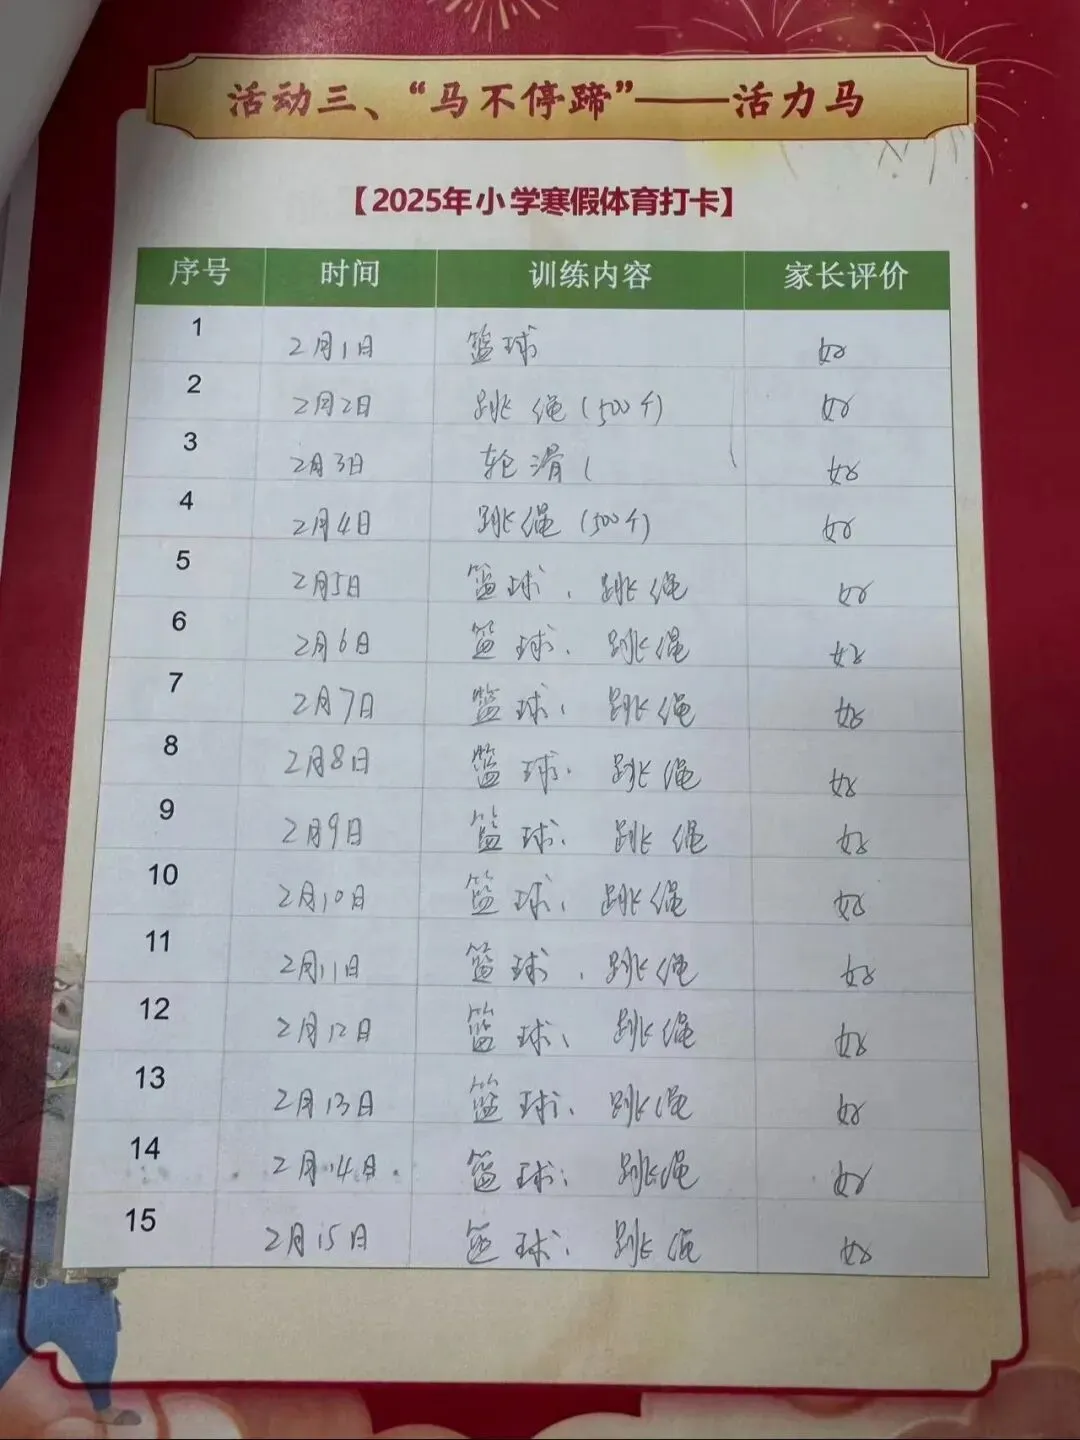 活动三、“马不停蹄”——活力马
【2025年小学寒假体育打卡】
序号 时间 训练内容 家长评价
1 2月1日 篮球 好
2 2月2日 跳绳(500个) 好
3 2月3日 轮滑( 好
4 2月4日 跳绳(500个) 好
5 2月5日 篮球、跳绳 好
6 2月6日 篮球、跳绳 好
7 2月7日 篮球、跳绳 好
8 2月8日 篮球、跳绳 好
9 2月9日 篮球、跳绳 好
10 2月10日 篮球、跳绳 好
11 2月11日 篮球、跳绳 好
12 2月12日 篮球、跳绳 好
13 2月13日 篮球、跳绳 好
14 2月14日 篮球、跳绳 好
15 2月15日 篮球、跳绳 好